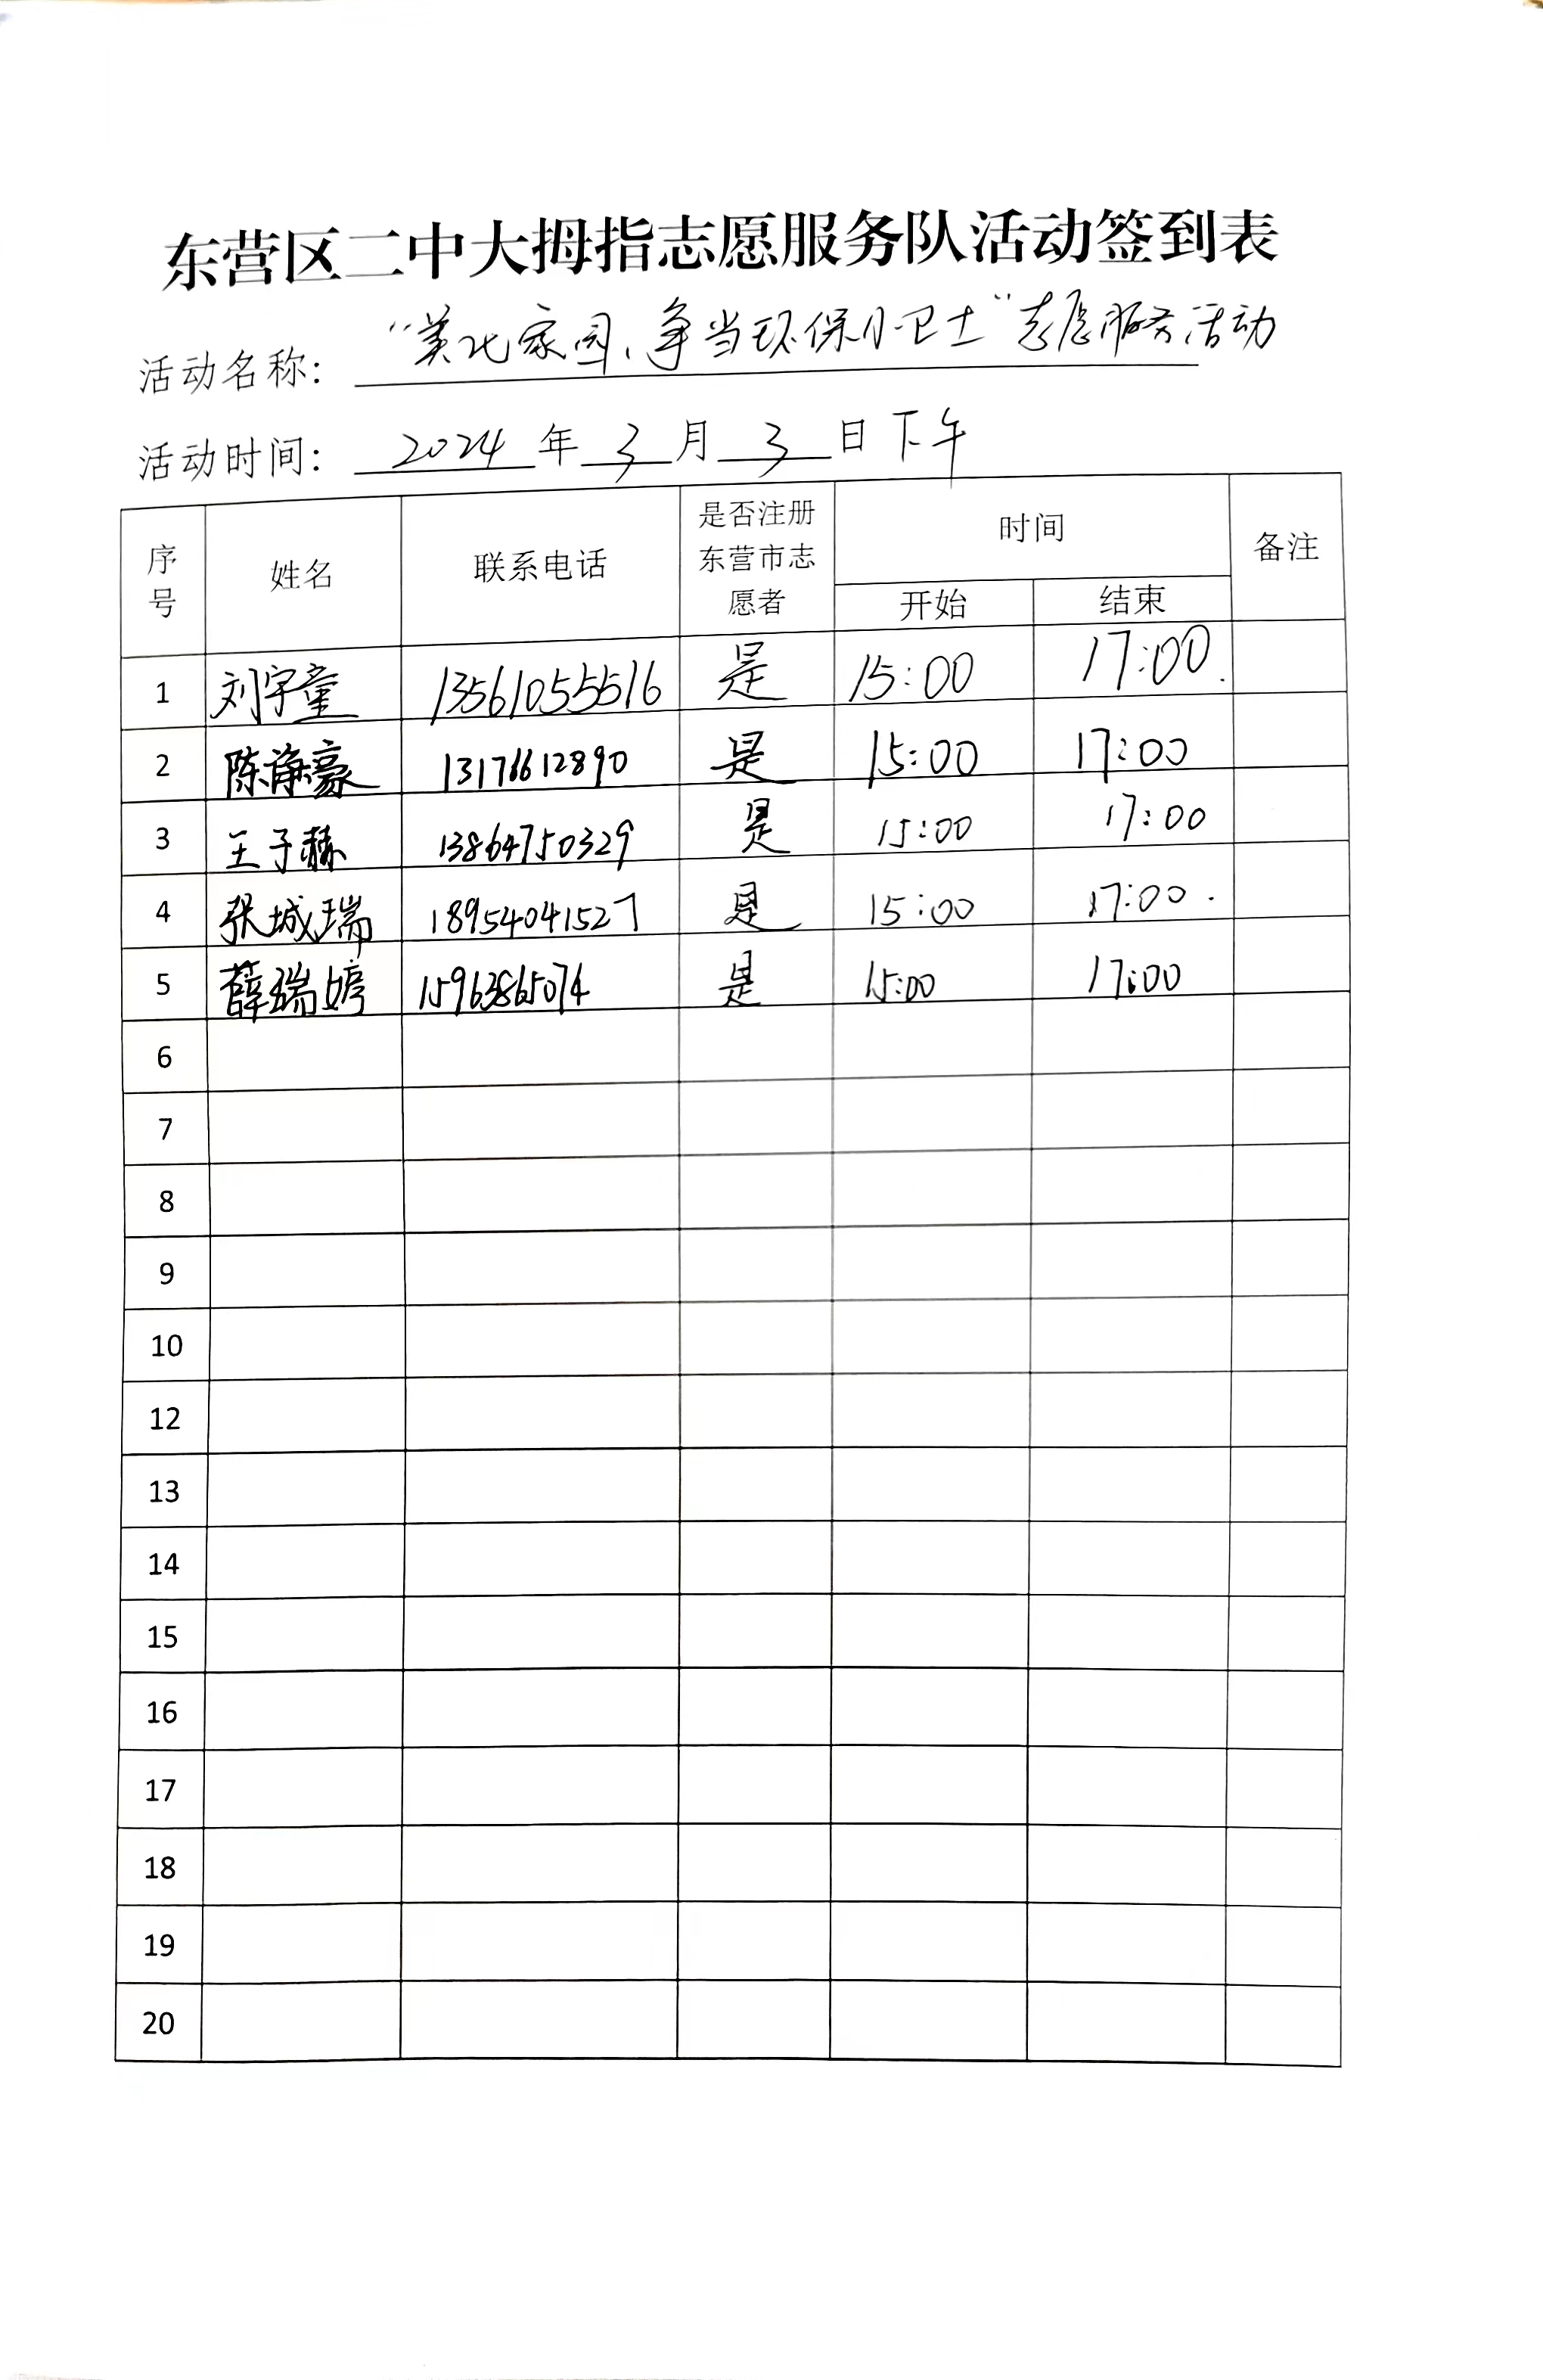 东营区二中大拇指志愿服务队活动签到表
活动名称: “美化家园、争当环保小卫士”志愿服务活动
活动时间: 2024 年 3 月 3 日下午
序号 姓名 联系电话 是否注册东营市志愿者 时间 备注
开始 结束
1 刘宇童 13561055516 是 15:00 17:00.
2 陈诤豪 13176612890 是 15:00 17:00
3 王子赫 13864750329 是 15:00 17:00
4 张城瑞 18954041527 是 15:00 17:00.
5 薛瑞婷 15963865074 是 15:00 17:00
6
7
8
9
10
12
13
14
15
16
17
18
19
20